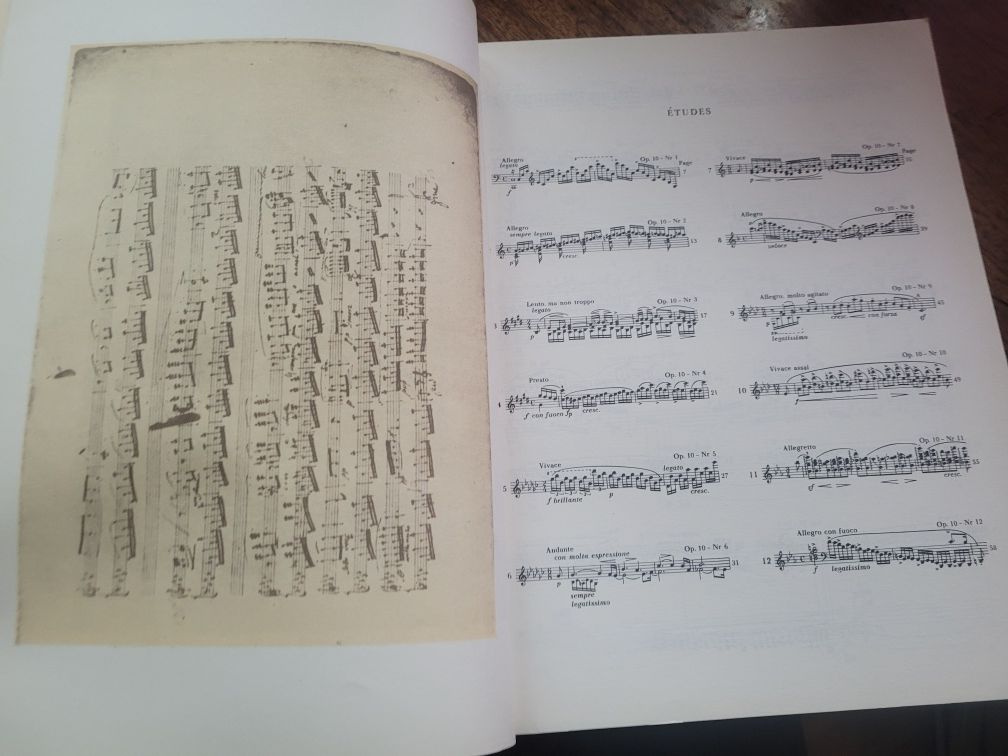 ÉTUDES
Allegro
legato
Op. 10 - Nr 1
Page
7
f
Allegro
sempre legato
Op. 10 - Nr 2
13
p
cresc.
Lento, ma non troppo
legato
Op. 10 - Nr 3
17
3
p
Presto
Op. 10 - Nr 4
21
4
f con fuoco fp
cresc.
Vivace
legato
Op. 10 - Nr 5
27
5
f brillante
p
cresc.
Andante
con molto espressione
Op. 10 - Nr 6
31
6
p
sempre
legatissimo
Vivace
Op. 10 - Nr 7
Page
35
7
p
Allegro
Op. 10 - Nr 8
39
8
veloce
Allegro, molto agitato
Op. 10 - Nr 9
45
9
p
cresc.
con forza
sf
legatissimo
Vivace assai
Op. 10 - Nr 10
49
10
f
Allegretto
Op. 10 - Nr 11
55
11
sf
cresc.
Allegro con fuoco
Op. 10 - Nr 12
58
12
f
legatissimo